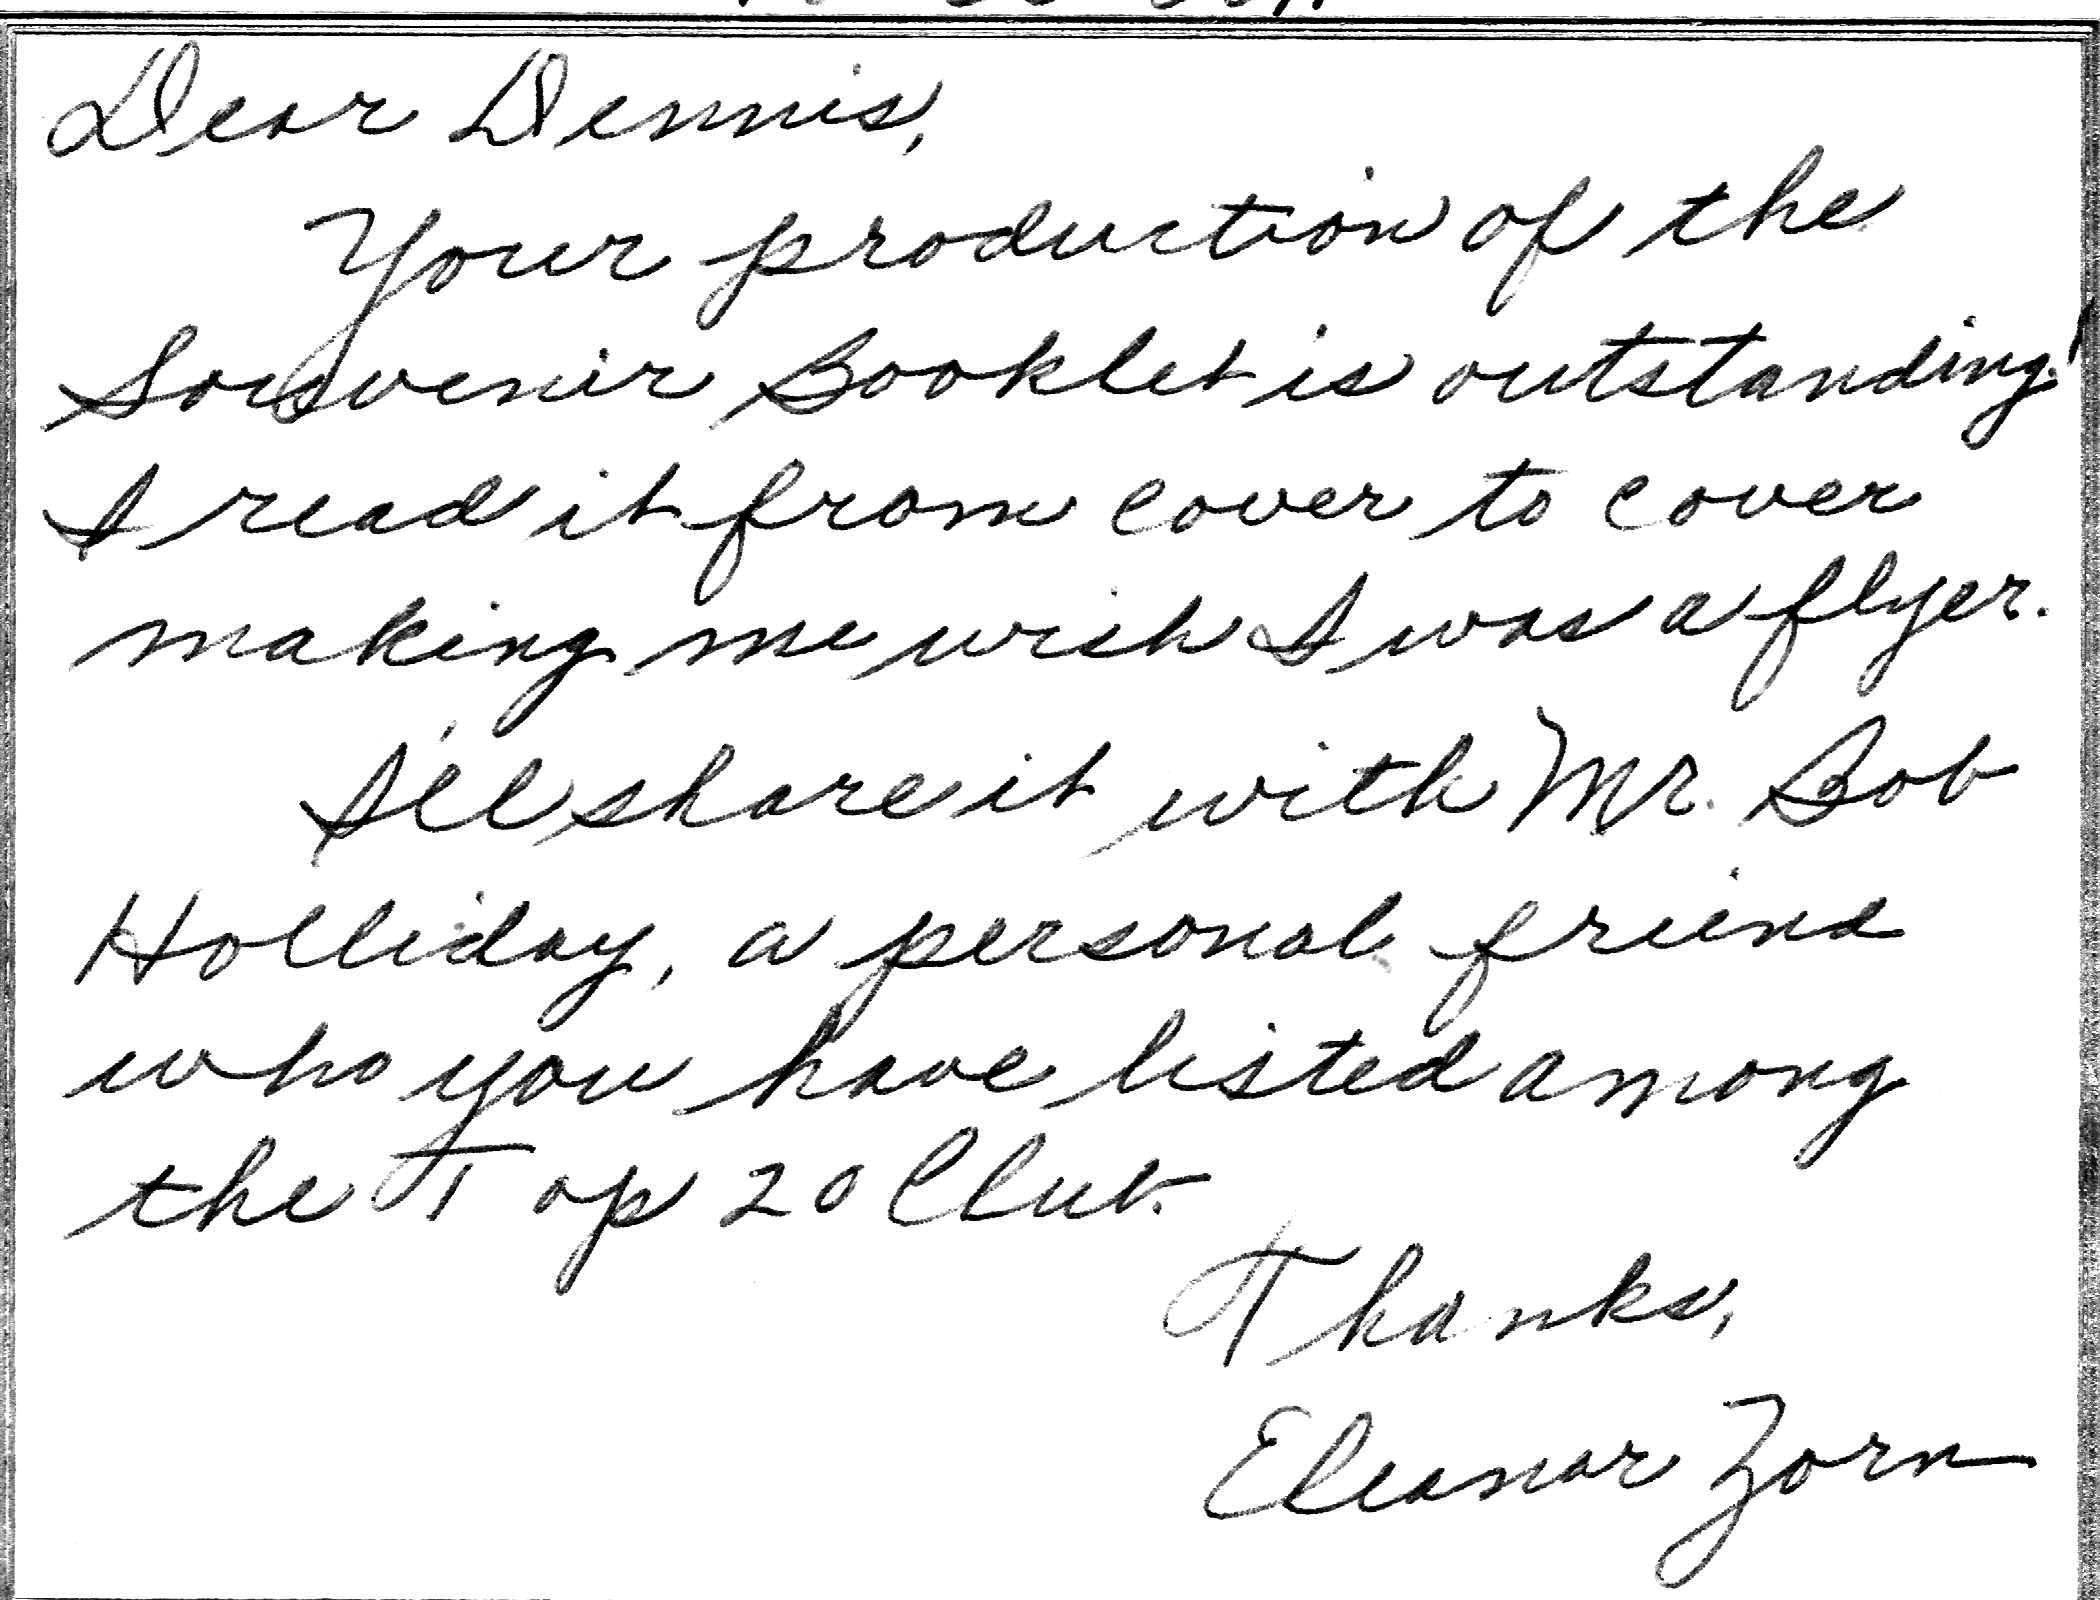 Dear Dennis,
Your production of the
Souvenir Booklet is outstanding!
I read it from cover to cover
making me wish I was a flyer.
I'll share it with Mr. Bob
Holliday, a personal friend
who you have listed among
the Top 20 Club.
Thanks,
Eleanor Zorn